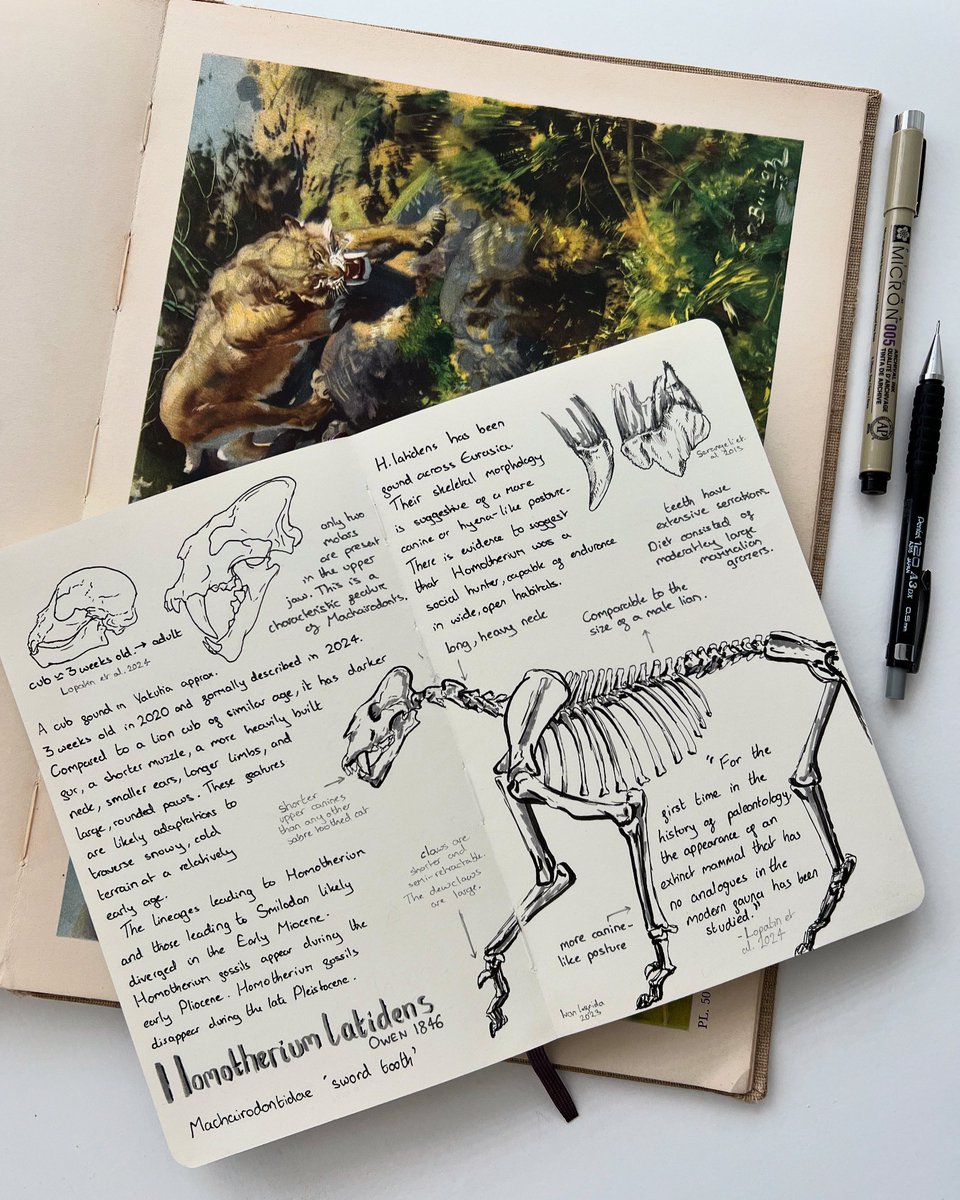 Burian
MICRON 005
ARCHIVAL INK
QUALITÉ D'ARCHIVAGE
TINTA DE ARCHIVE
AP
Pentel
A3DX
0.5mm
PL. 50
only two
molars
are present
in the upper
jaw. This is a
characteristic feature
of Machairodonts.
cub ≈ 3 weeks old. → adult
Lopatin et al. 2024
A cub found in Yakutia approx.
3 weeks old in 2020 and formally described in 2024.
Compared to a lion cub of similar age, it has darker
fur, a shorter muzzle, a more heavily built
neck, smaller ears, longer limbs, and
large, rounded paws. These features
are likely adaptations to
traverse snowy, cold
terrain at a relatively
early age.
The lineages leading to Homotherium
and those leading to Smilodon likely
diverged in the Early Miocene.
Homotherium fossils appear during the
early Pliocene. Homotherium fossils
disappear during the late Pleistocene.
Homotherium latidens
OWEN 1846
Machairodontidae 'sword tooth'
H. latidens has been
found across Eurasia.
Their skeletal morphology
is suggestive of a more
canine or hyena-like posture.
There is evidence to suggest
that Homotherium was a
social hunter, capable of endurance
in wide, open habitats.
long, heavy neck
et al. 2015
teeth have
extensive serrations.
Diet consisted of
moderatley large
mammalian
grazers.
Comparable to the
size of a male lion.
shorter
upper canines
than any other
sabre toothed cat
claws are
shorter and
semi-retractable.
The dewclaws
are large.
more canine-
like posture
"For the
first time in the
history of paleontology,
the appearance of an
extinct mammal that has
no analogues in the
modern fauna has been
studied."
- Lopatin et
al. 2024
2023